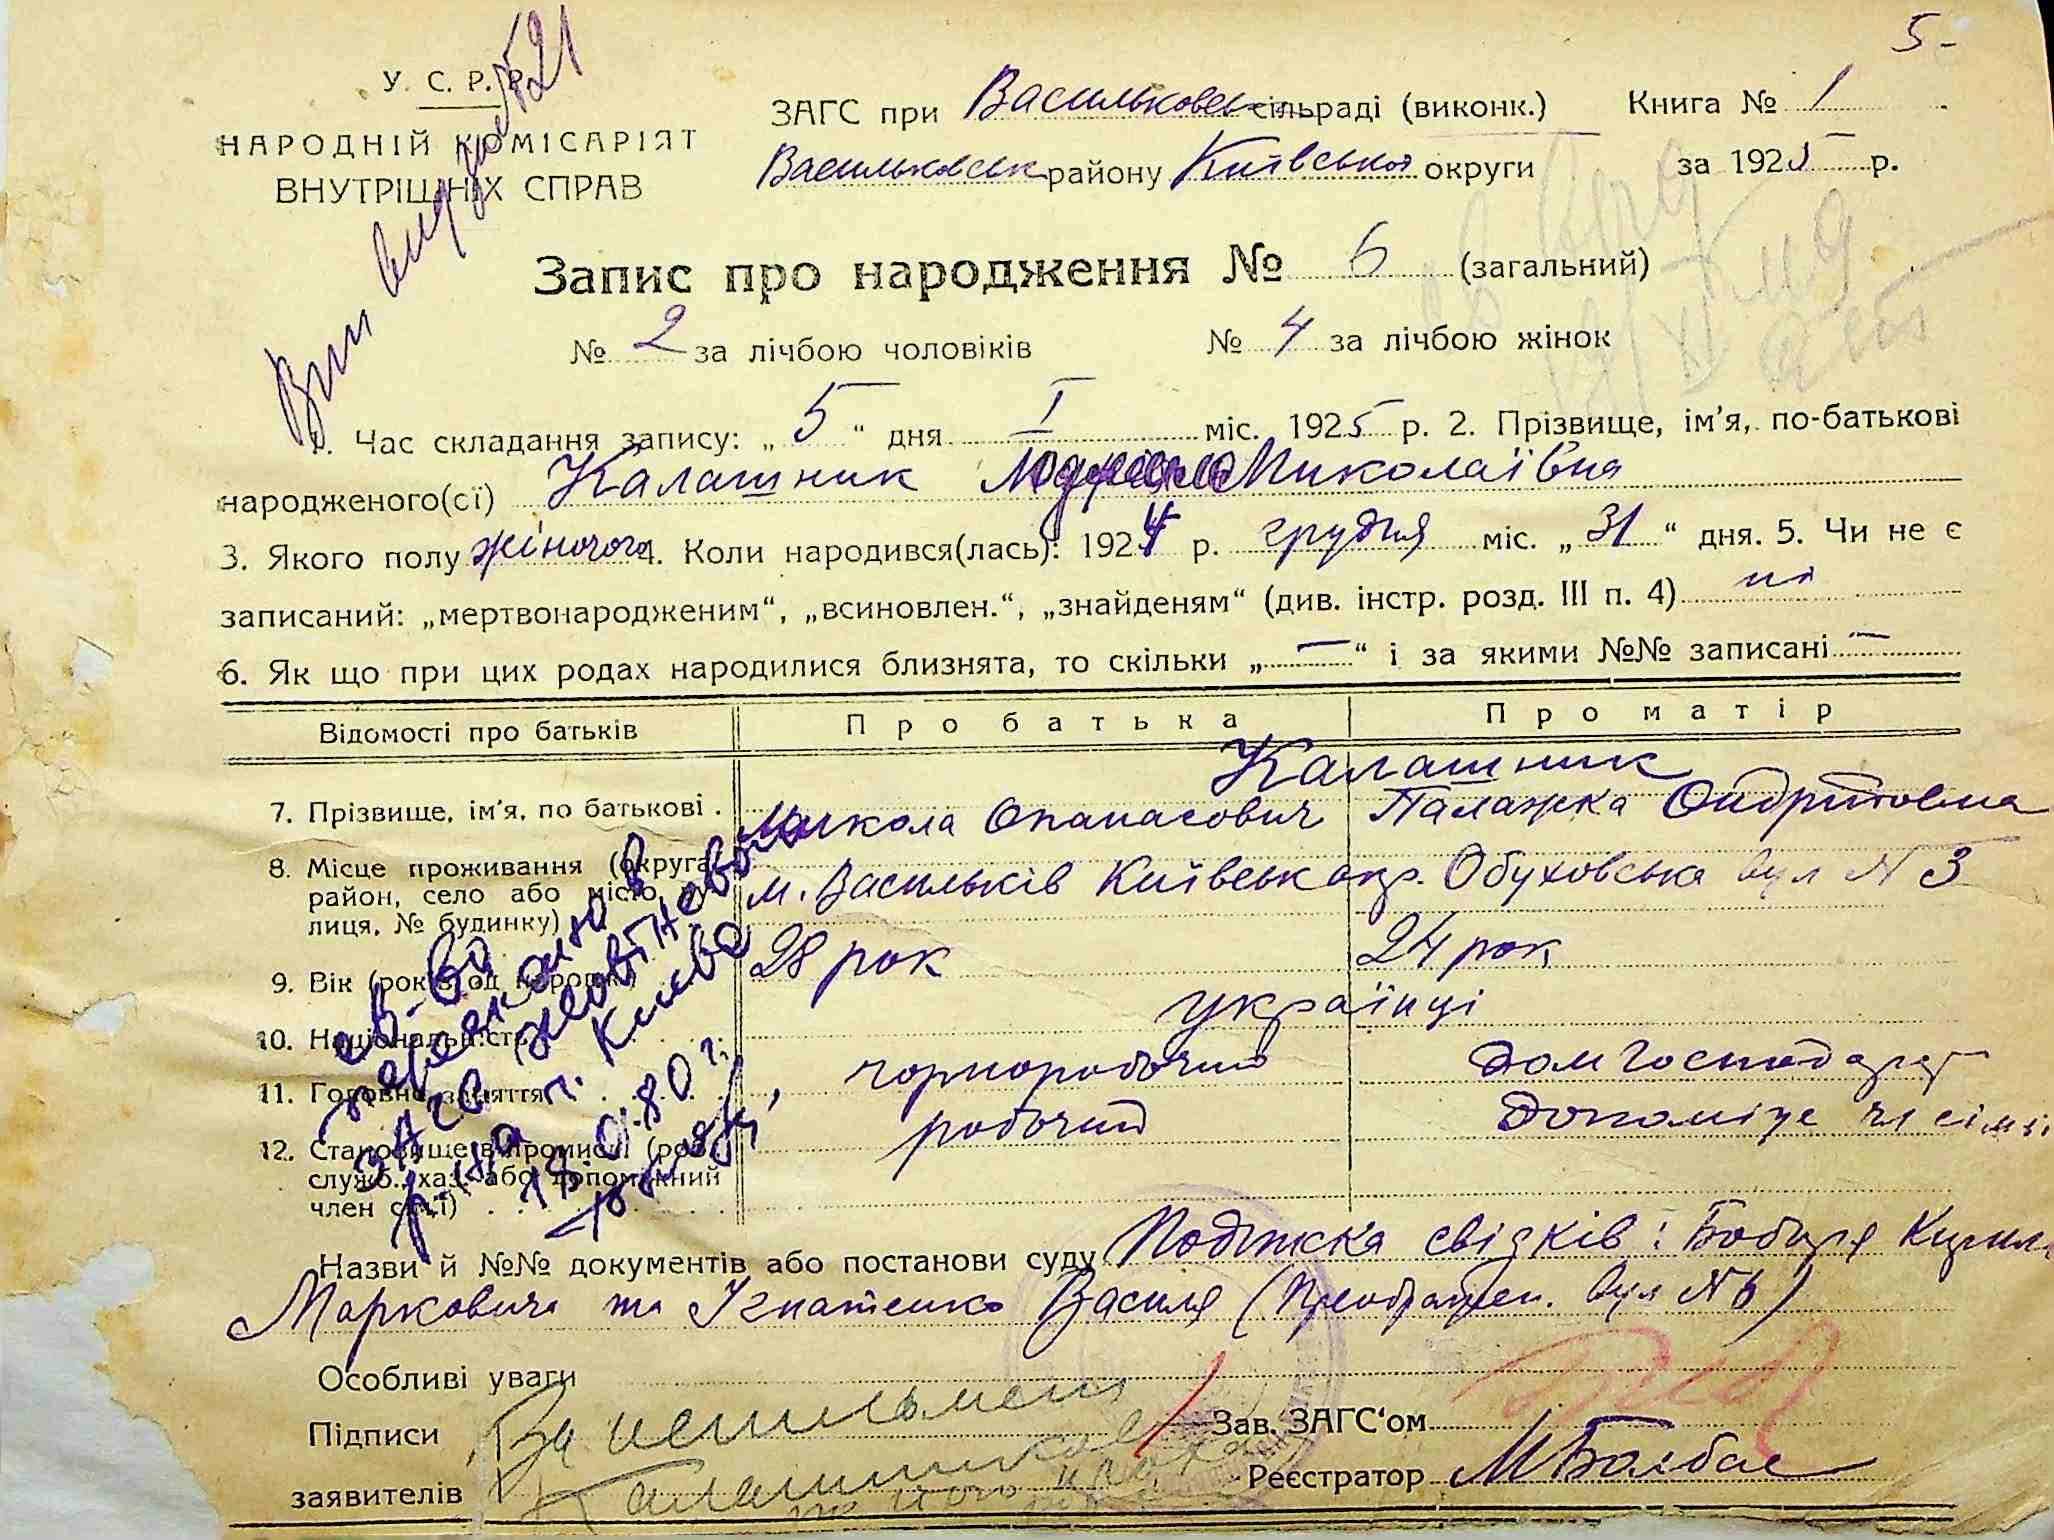 5-
У. С. Р. Р.
НАРОДНІЙ КОМІСАРІЯТ
ВНУТРІШНІХ СПРАВ
ЗАГС при Васильковськ сільраді (виконк.) Книга № 1
Васильковськ району Київської округи за 1925 р.
Запис про народження № 6 (загальний)
№ 2 за лічбою чоловіків № 4 за лічбою жінок
1. Час складання запису: „ 5 “ дня I міс. 1925 р. 2. Прізвище, ім'я, по-батькові
народженого(сї) Калашник Миколаївна
3. Якого полу жіночого 4. Коли народився(лась): 1924 р. грудня міс. „ 31 “ дня. 5. Чи не є
записаний: „мертвонародженим“, „всиновлен.“, „знайденям“ (див. інстр. розд. III п. 4) ні
6. Як що при цих родах народилися близнята, то скільки „ — “ і за якими №№ записані —
Відомості про батьків Про батька Про матір
Калашник
7. Прізвище, ім'я, по батькові . Микола Опанасович Палажка
8. Місце проживання (округа,
район, село або місто, ву-
лиця, № будинку) м. Васильків Київськ окр. Обуховська вул N 3
9. Вік (років од народж.) 28 рок 24 рок
10. Національність українці
11. Головне заняття чорноробочий дом господар
12. Становище в промислі (роб.,
служб., хаз. або допоміжний
член сім'ї) робочий допоміж чл сімї
св-во
ЗАГС
г. Киева
18. 80 г.
Назви й №№ документів або постанови суду Подпіска свідків: Бобиря Кирила
Марковича та Ігнатенко Василя (Преображен. вул N 6)
Особливі уваги
Підписи
заявителів
Зав. ЗАГС'ом
Реєстратор